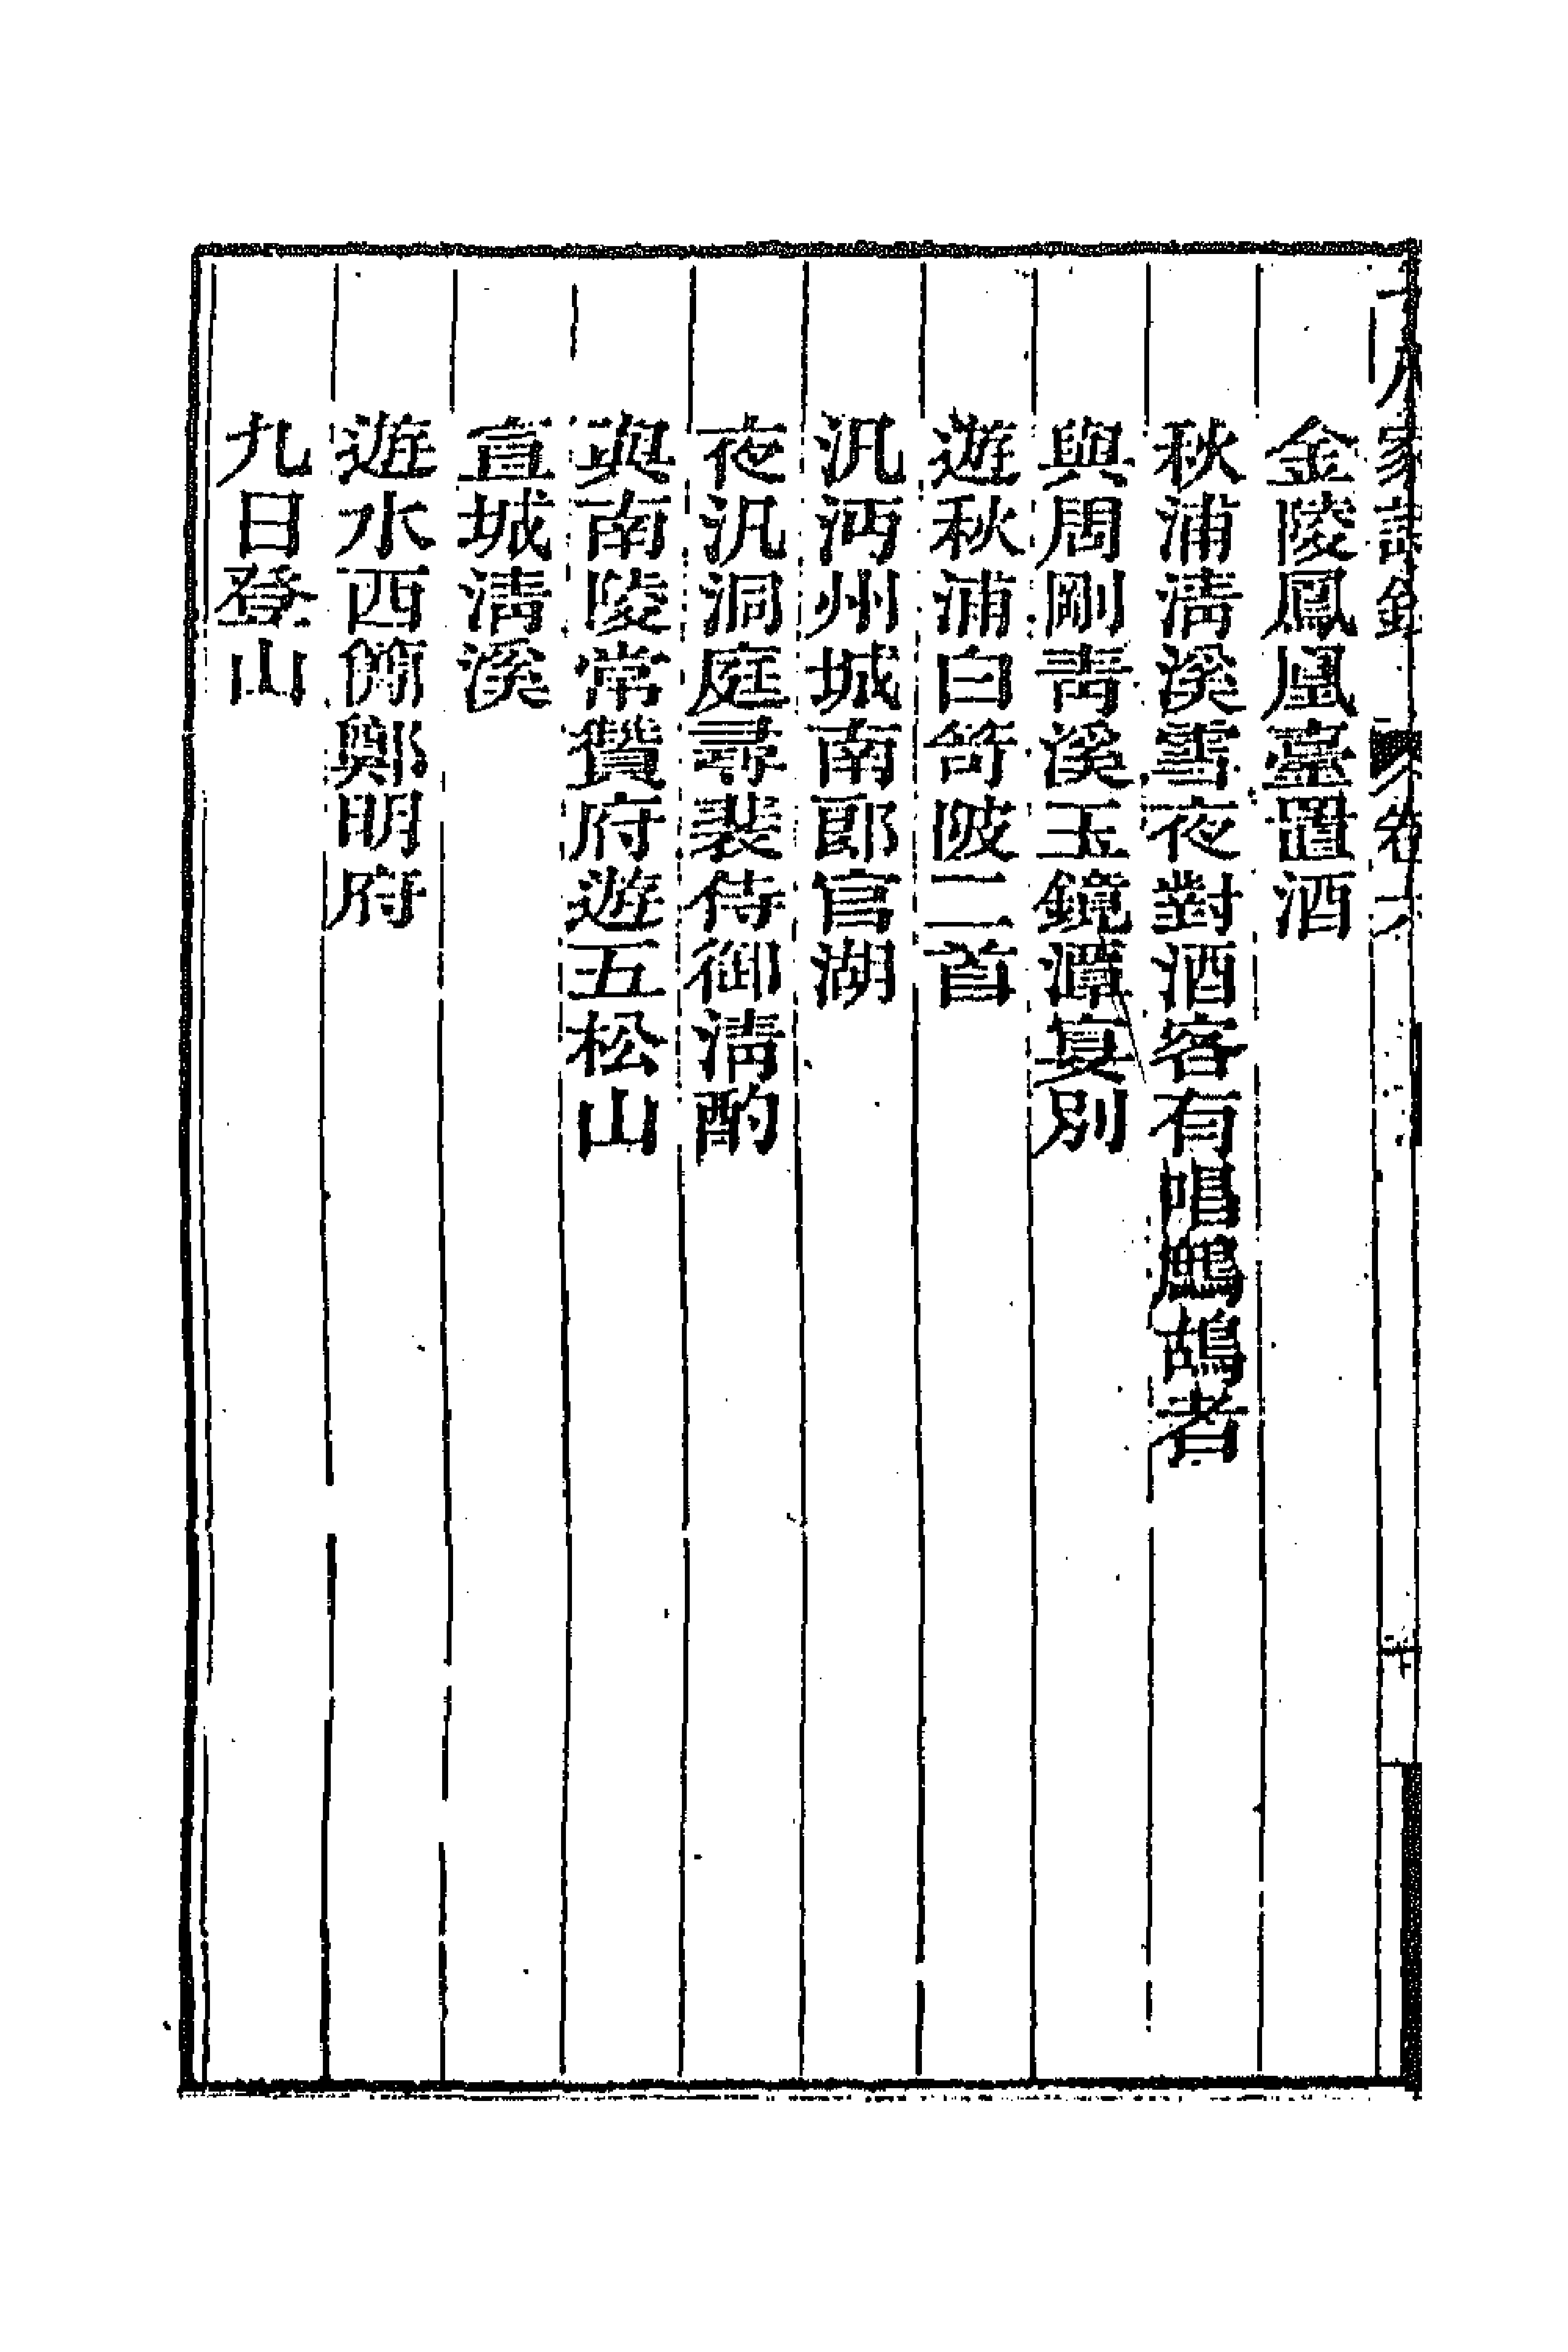 十八家詩鈔 卷六 十
金陵鳳凰臺置酒
秋浦清溪雪夜對酒客有唱鷓鴣者
與周剛青溪玉鏡潭宴別
遊秋浦白笴陂二首
汎沔州城南郎官湖
夜汎洞庭尋裴侍御清酌
與南陵常贊府遊五松山
宣城清溪
遊水西簡鄭明府
九日登山